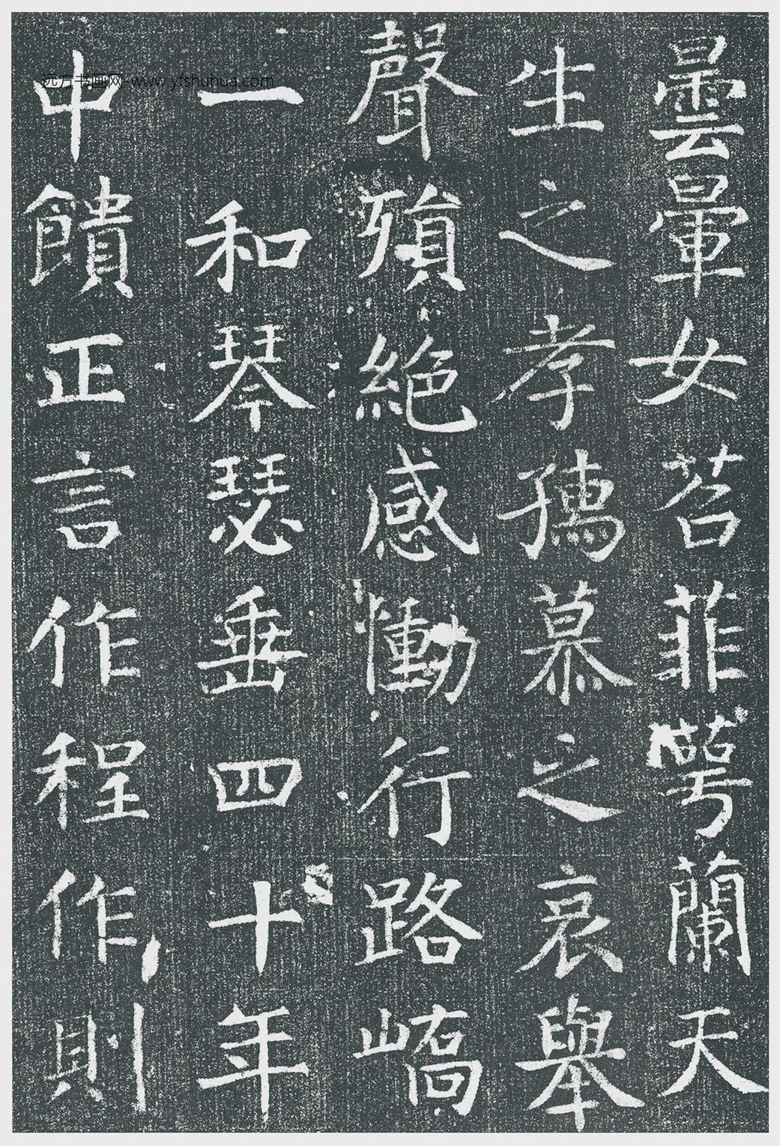 曇暈女苕菲萼蘭天
生之孝孺慕之哀舉
聲殞絕感慟行路嶠
一和琴瑟垂四十年
中饋正言作程作則
远方书画网-www.yfshuhua.com